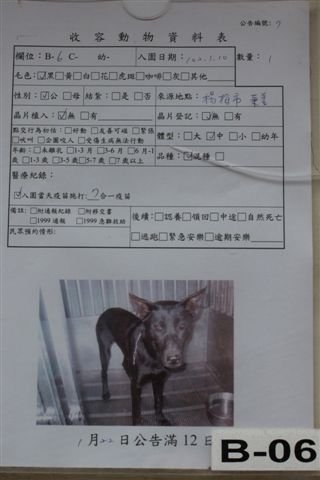 公告編號: 7
收容動物資料表
欄位:B-6 C- 助- 入園日期: 102.1.10 數量: 1
毛色:☑黑□黃□白□花□虎斑□咖啡□灰□其他
性別:☑公□母 結紮:□是 □否 來源地點: 楊梅市
晶片植入:☑無□有 晶片登記:☑無□有
點交行為初估:□好動 □友善可碰 □緊張
□吠叫 □企圖咬人 □受傷生病無法行動
體型:□大☑中□小□幼年
年齡:□未離乳 □1-3月 □3-6月 □6月-1
歲□1-3歲 □3-5歲□5-7歲 □7歲以上
品種:☑混種 □
醫療紀錄:
☑入園當天疫苗施打: 7合一疫苗
備註:□附通報紀錄 □附移交書
□1999通報 □1999急難救助
後續:□認養□領回□中途□自然死亡
民眾預約情形:
□逃跑□緊急安樂□逾期安樂
1月22日公告滿12日
B-06